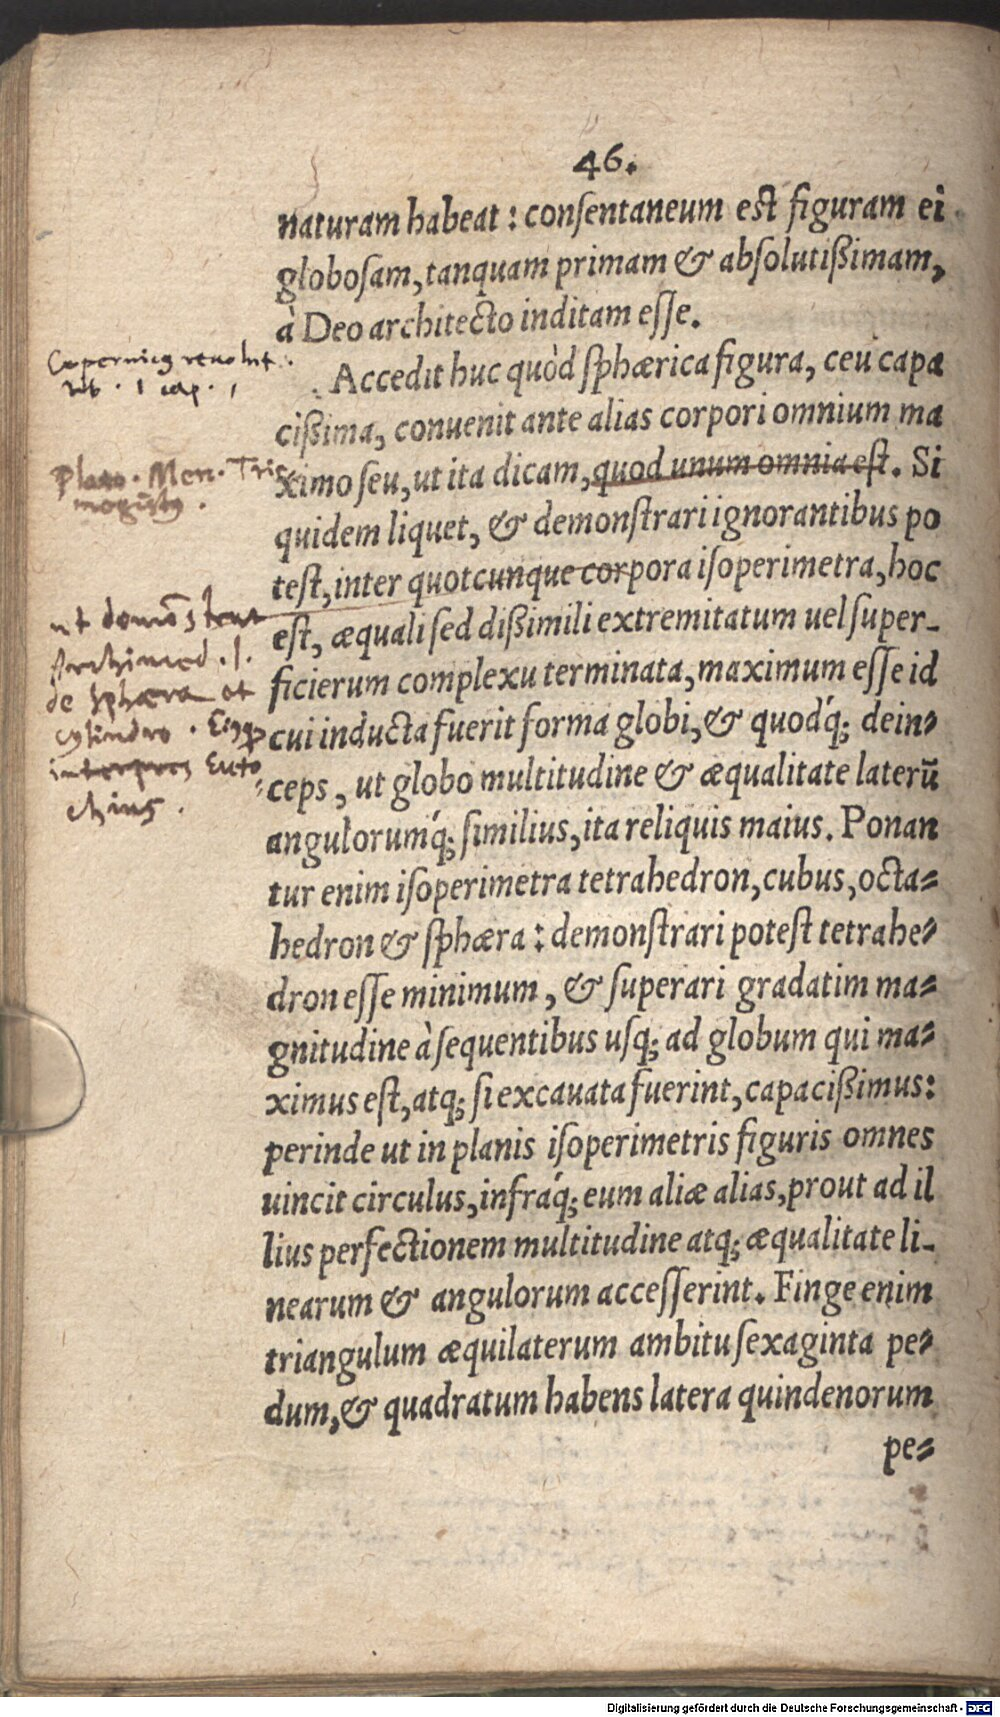 46.
naturam habeat : consentaneum est figuram ei
globosam, tanquam primam & absolutißimam,
à Deo architecto inditam esse.
Copernicus revolut.
lib. 1 cap. 1
Accedit huc quòd sphærica figura, ceu capa
cißima, convenit ante alias corpori omnium ma
Plato. Mer. Tris
megistus.
ximo seu, ut ita dicam, quod unum omnia est. Si
quidem liquet, & demonstrari ignorantibus po
test, inter quotcunque corpora isoperimetra, hoc
ut demōstrat
Archimed. l.
de sphæra et
cylindro. Eiusq
interpres Euto
chius.
est, æquali sed dißimili extremitatum uel super-
ficierum complexu terminata, maximum esse id
cui inducta fuerit forma globi, & quodq́; dein-
ceps, ut globo multitudine & æqualitate laterũ
angulorumq́; similius, ita reliquis maius. Ponan
tur enim isoperimetra tetrahedron, cubus, octa-
hedron & sphæra : demonstrari potest tetrahe-
dron esse minimum, & superari gradatim ma-
gnitudine à sequentibus usq; ad globum qui ma-
ximus est, atq; si excavata fuerint, capacißimus:
perinde ut in planis isoperimetris figuris omnes
uincit circulus, infraq́; eum aliæ alias, prout ad il
lius perfectionem multitudine atq; æqualitate li-
nearum & angulorum accesserint. Finge enim
triangulum æquilaterum ambitu sexaginta pe-
dum, & quadratum habens latera quindenorum
pe-
Digitalisierung gefördert durch die Deutsche Forschungsgemeinschaft - DFG